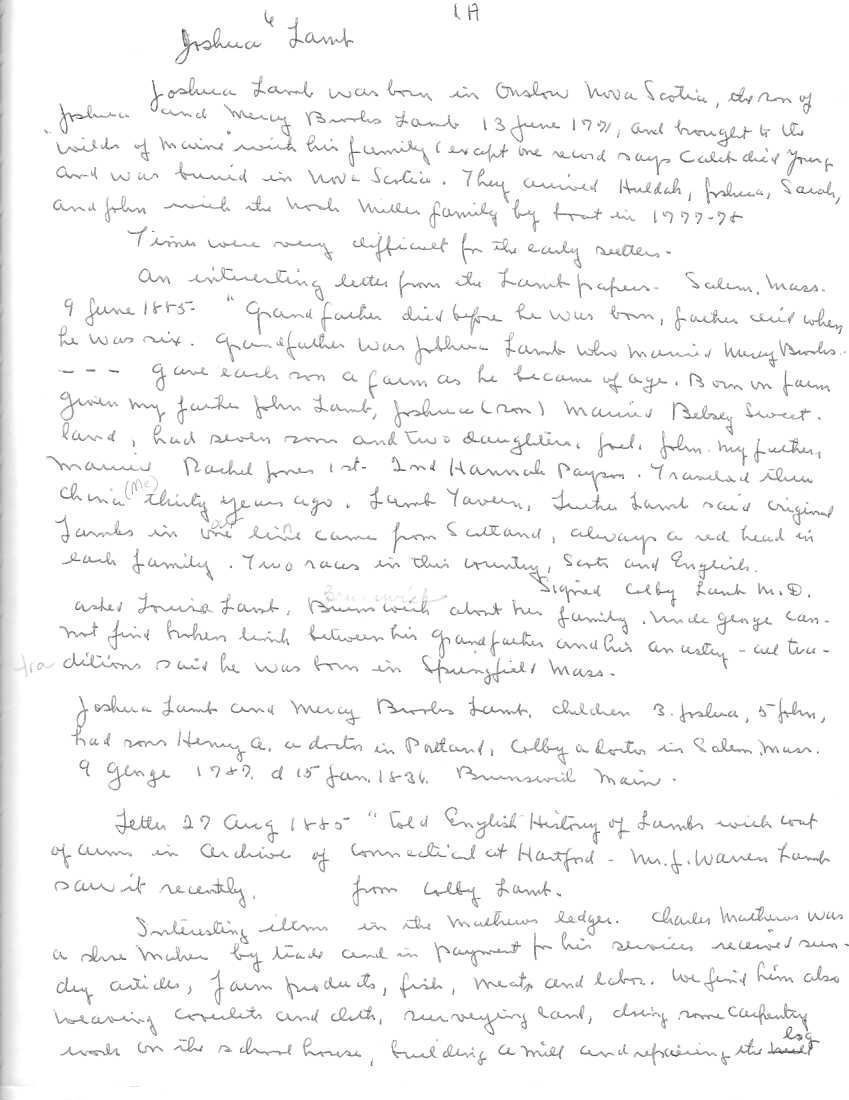 1A
Joshua 6 Lamb
Joshua Lamb was born in Onslow Nova Scotia, the son of
Joshua and Mercy Brooks Lamb 13 June 1771, and brought to the
"wilds of Maine" with his family (except one record says Caleb died young
and was buried in Nova Scotia. They arrived Huldah, Joshua, Sarah,
and John with the Noah Miller family by boat in 1777-78
Times were very difficult for the early settlers.
An interesting letter from the Lamb papers. Salem, Mass.
9 June 1885- "Grandfather died before he was born, father died when
he was six. Grandfather was Joshua Lamb who married Mercy Brooks.
- - - gave each son a farm as he became of age. Born on farm
given my father John Lamb, Joshua (son) married Betsey Sweet-
land, had seven sons and two daughters. John my father,
married Rachel Jones 1st- 2nd Hannah Payson.
China (Me) thirty years ago. Lamb Tavern, Luther Lamb said original
Lambs in our line came from Scotland, always a red head in
each family. Two races in this country, Scots and English.
Signed Colby Lamb M.D.
asked Louisa Lamb, Brunswick Brunswick about her family. Uncle George can-
not find broken link between his grandfather and his ancestry - all tra-
tra ditions said he was born in Springfield Mass.
Joshua Lamb and Mercy Brooks Lamb, children 3. Joshua, 5 John,
had sons Henry A. a doctor in Portland, Colby a doctor in Salem, Mass.
9 George 1787. d 15 Jan. 1836. Brunswick Main.
Letter 27 Aug 1885 "told English History of Lambs with coat
of arms in archive of Connecticut at Hartford - Mr. J. Warren Lamb
saw it recently. from Colby Lamb.
Interesting items in the Mathews ledger. Charles Mathews was
a shoe maker by trade and in payment for his services received sun-
dry articles, farm products, fish, meats and labor. We find him also
weaving coverlets and cloth, surveying land, doing some carpentry
work on the school house, building a mill and repairing the